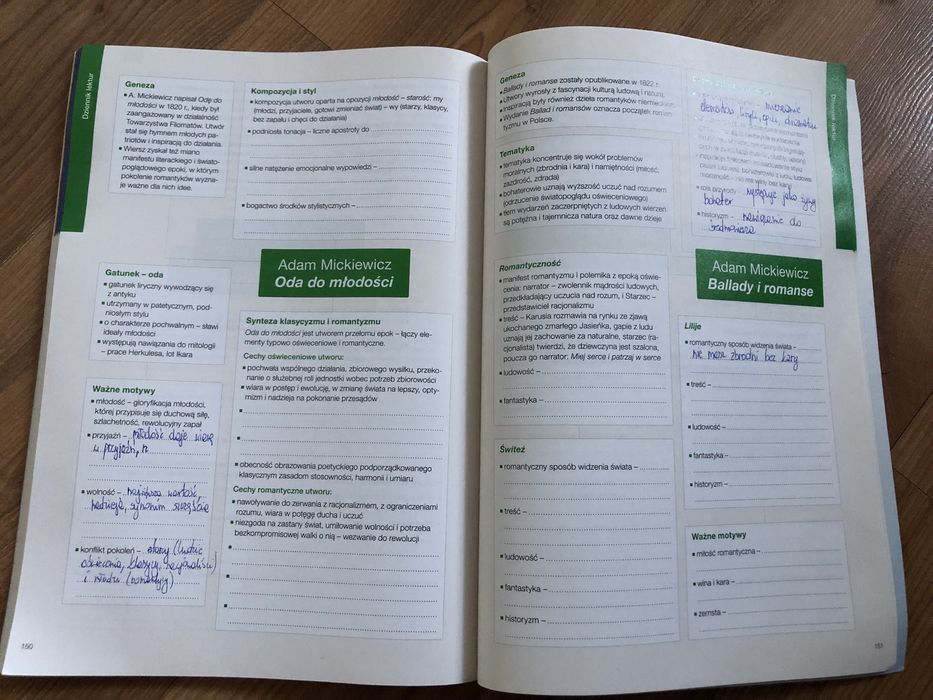 Dziennik lektur
Geneza
▪ A. Mickiewicz napisał Odę do
młodości w 1820 r., kiedy był
zaangażowany w działalność
Towarzystwa Filomatów. Utwór
stał się hymnem młodych pa-
triotów i inspiracją do działania.
▪ Wiersz zyskał też miano
manifestu literackiego i świato-
poglądowego epoki, w którym
pokolenie romantyków wyzna-
je ważne dla nich idee.
Kompozycja i styl
▪ kompozycja utworu oparta na opozycji młodość – starość; my
(młodzi, przyjaciele, gotowi zmieniać świat) – wy (starzy, klasycy,
bez zapału i chęci do działania)
▪ podniosła tonacja – liczne apostrofy do
▪ silne natężenie emocjonalne wypowiedzi –
▪ bogactwo środków stylistycznych –
Gatunek – oda
▪ gatunek liryczny wywodzący się
z antyku
▪ utrzymany w patetycznym, pod-
niosłym stylu
▪ o charakterze pochwalnym – sławi
ideały młodości
▪ występują nawiązania do mitologii
– prace Herkulesa, lot Ikara
Adam Mickiewicz
Oda do młodości
Ważne motywy
▪ młodość – gloryfikacja młodości,
której przypisuje się duchową siłę,
szlachetność, rewolucyjny zapał
▪ przyjaźń – młodość daje wiarę
w przyjaźń,
▪ wolność – największa wartość,
nadzieja, synonim szczęścia
▪ konflikt pokoleń – starzy (ludzie
oświecenia, klasycy, racjonaliści)
i młodzi (romantycy)
Synteza klasycyzmu i romantyzmu
Oda do młodości jest utworem przełomu epok – łączy ele-
menty typowo oświeceniowe i romantyczne.
Cechy oświeceniowe utworu:
▪ pochwała wspólnego działania, zbiorowego wysiłku, przeko-
nanie o służebnej roli jednostki wobec potrzeb zbiorowości
▪ wiara w postęp i ewolucję, w zmianę świata na lepszy, opty-
mizm i nadzieja na pokonanie przesądów
▪ obecność obrazowania poetyckiego podporządkowanego
klasycznym zasadom stosowności, harmonii i umiaru
Cechy romantyczne utworu:
▪ nawoływanie do zerwania z racjonalizmem, z ograniczeniami
rozumu, wiara w potęgę ducha i uczuć
▪ niezgoda na zastany świat, umiłowanie wolności i potrzeba
bezkompromisowej walki o nią – wezwanie do rewolucji
160
Geneza
▪ Ballady i romanse zostały opublikowane w 1822 r.
▪ Utwory wyrosły z fascynacji kulturą ludową i naturą.
▪ Inspiracją były również dzieła romantyków niemieckich.
▪ Wydanie Ballad i romansów oznacza początek roman-
tyzmu w Polsce.
Tematyka
▪ tematyka koncentruje się wokół problemów
moralnych (zbrodnia i kara) i namiętności (miłość,
zazdrość, zdrada)
▪ bohaterowie uznają wyższość uczuć nad rozumem
(odrzucenie światopoglądu oświeceniowego)
▪ tłem wydarzeń zaczerpniętych z ludowych wierzeń
są potężna i tajemnicza natura oraz dawne dzieje
mieszanie
elementów liryki, epiki, dramatu
▪ rola przyrody – występuje jako żywy
bohater
▪ historyzm – nawiązanie do
średniowiecza
Romantyczność
▪ manifest romantyzmu i polemika z epoką oświe-
cenia: narrator – zwolennik mądrości ludowych,
przedkładający uczucia nad rozum, i Starzec –
przedstawiciel racjonalizmu
▪ treść – Karusia rozmawia na rynku ze zjawą
ukochanego zmarłego Jasieńka, gapie z ludu
uznają jej zachowanie za naturalne, starzec (ra-
cjonalista) twierdzi, że dziewczyna jest szalona,
poucza go narrator: Miej serce i patrzaj w serce
▪ ludowość –
▪ fantastyka –
Adam Mickiewicz
Ballady i romanse
Świteź
▪ romantyczny sposób widzenia świata –
▪ treść –
▪ ludowość –
▪ fantastyka –
▪ historyzm –
Lilije
▪ romantyczny sposób widzenia świata –
nie masz zbrodni bez kary
▪ treść –
▪ ludowość –
▪ fantastyka –
▪ historyzm –
Ważne motywy
▪ miłość romantyczna –
▪ wina i kara –
▪ zemsta –
151